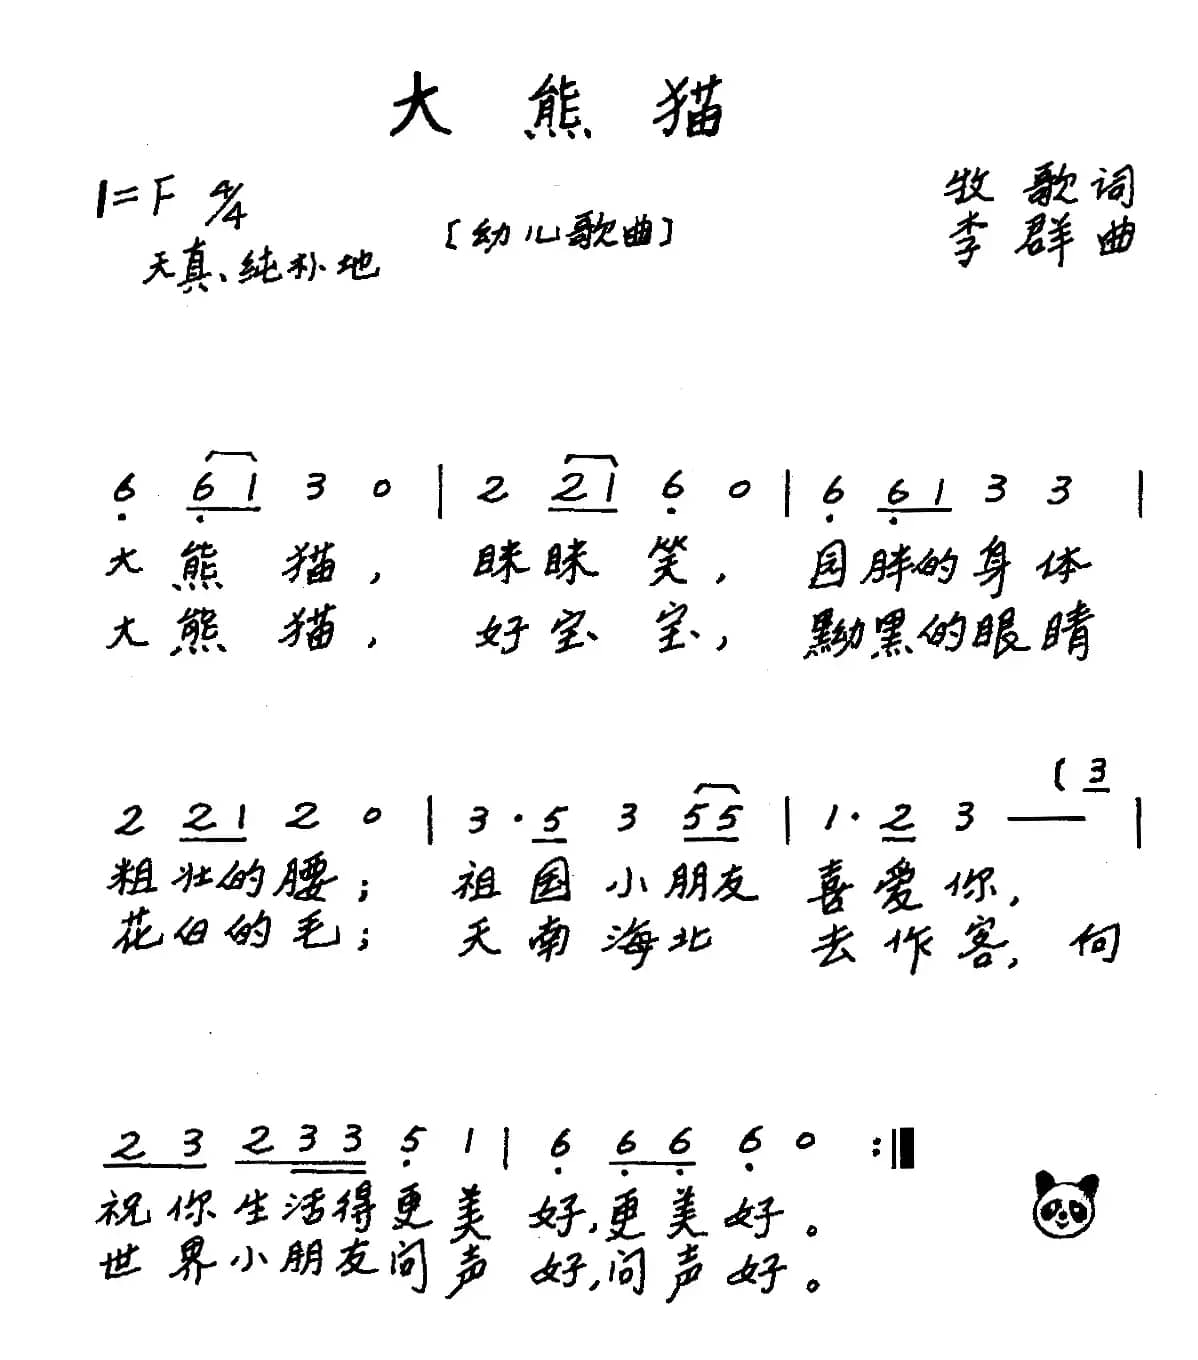 大熊猫
1=F 4/4
[幼儿歌曲]
牧歌词
李群曲
天真、纯朴地
6̣ 6̣1 3 0 | 2 21 6̣ 0 | 6̣ 6̣1 3 3 |
大熊猫，眯眯笑，园胖的身体
大熊猫，好宝宝，黝黑的眼睛
2 21 2 0 | 3·5 3 55 | 1·2 3 — (3 |
粗壮的腰；祖国小朋友喜爱你，
花白的毛；天南海北去作客，向
2 3 2 33 5̣ 1 | 6̣ 6̣ 6̣ 6̣ 0 :‖
祝你生活得更美好，更美好。
世界小朋友问声好，问声好。